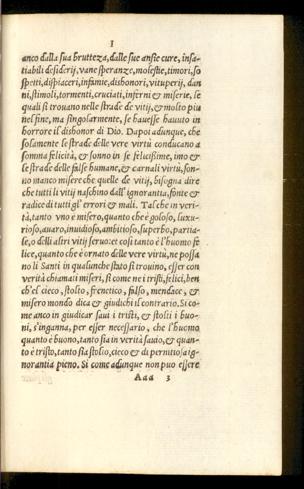 I
anco dalla sua bruttezza, dalle sue ansie cure, insa-
tiabili desiderij, vane speranze, molestie, timori, so
spetti, dispiaceri, infamie, dishonori, vituperij, dan
ni, stimoli, tormenti, cruciati, inferni & miserie, se
quali si trouano nelle strade de vitij, & molto piu
nel fine, ma singolarmente, se hauesse hauuto in
horrore il dishonor di Dio. Dapoi adunque, che
solamente le strade delle vere virtù conducano a
somma felicità, & sonno in se felicissime, imo &
le strade delle false humane, & carnali virtù, son-
no manco misere che quelle de vitij, bisogna dire
che tutti li vitij naschino dall'ignorantia, fonte &
radice di tutti gl'errori & mali. Talche in veri-
tà, tanto vno è misero, quanto che è goloso, luxu-
rioso, auaro, inuidioso, ambitioso, superbo, partia-
le, o delli altri vitij seruo: et così tanto è l'huomo fe
lice, quanto che è ornato delle vere virtù, ne possa
no li Santi in qualunche stato si trouino, esser con
verità chiamati miseri, sì come ne i tristi, felici, ben
ch'el cieco, stolto, frenetico, falso, mendace, &
misero mondo dica & giudichi il contrario. Si co
me anco in giudicar saui i tristi, & stolti i buo-
ni, s'inganna, per esser necessario, che l'huomo
quanto è buono, tanto sia in verità sauio, & quan-
to è tristo, tanto sia stolto, cieco & di pernitiosa ig-
norantia pieno. Si come adunque non può essere
Aaa 3